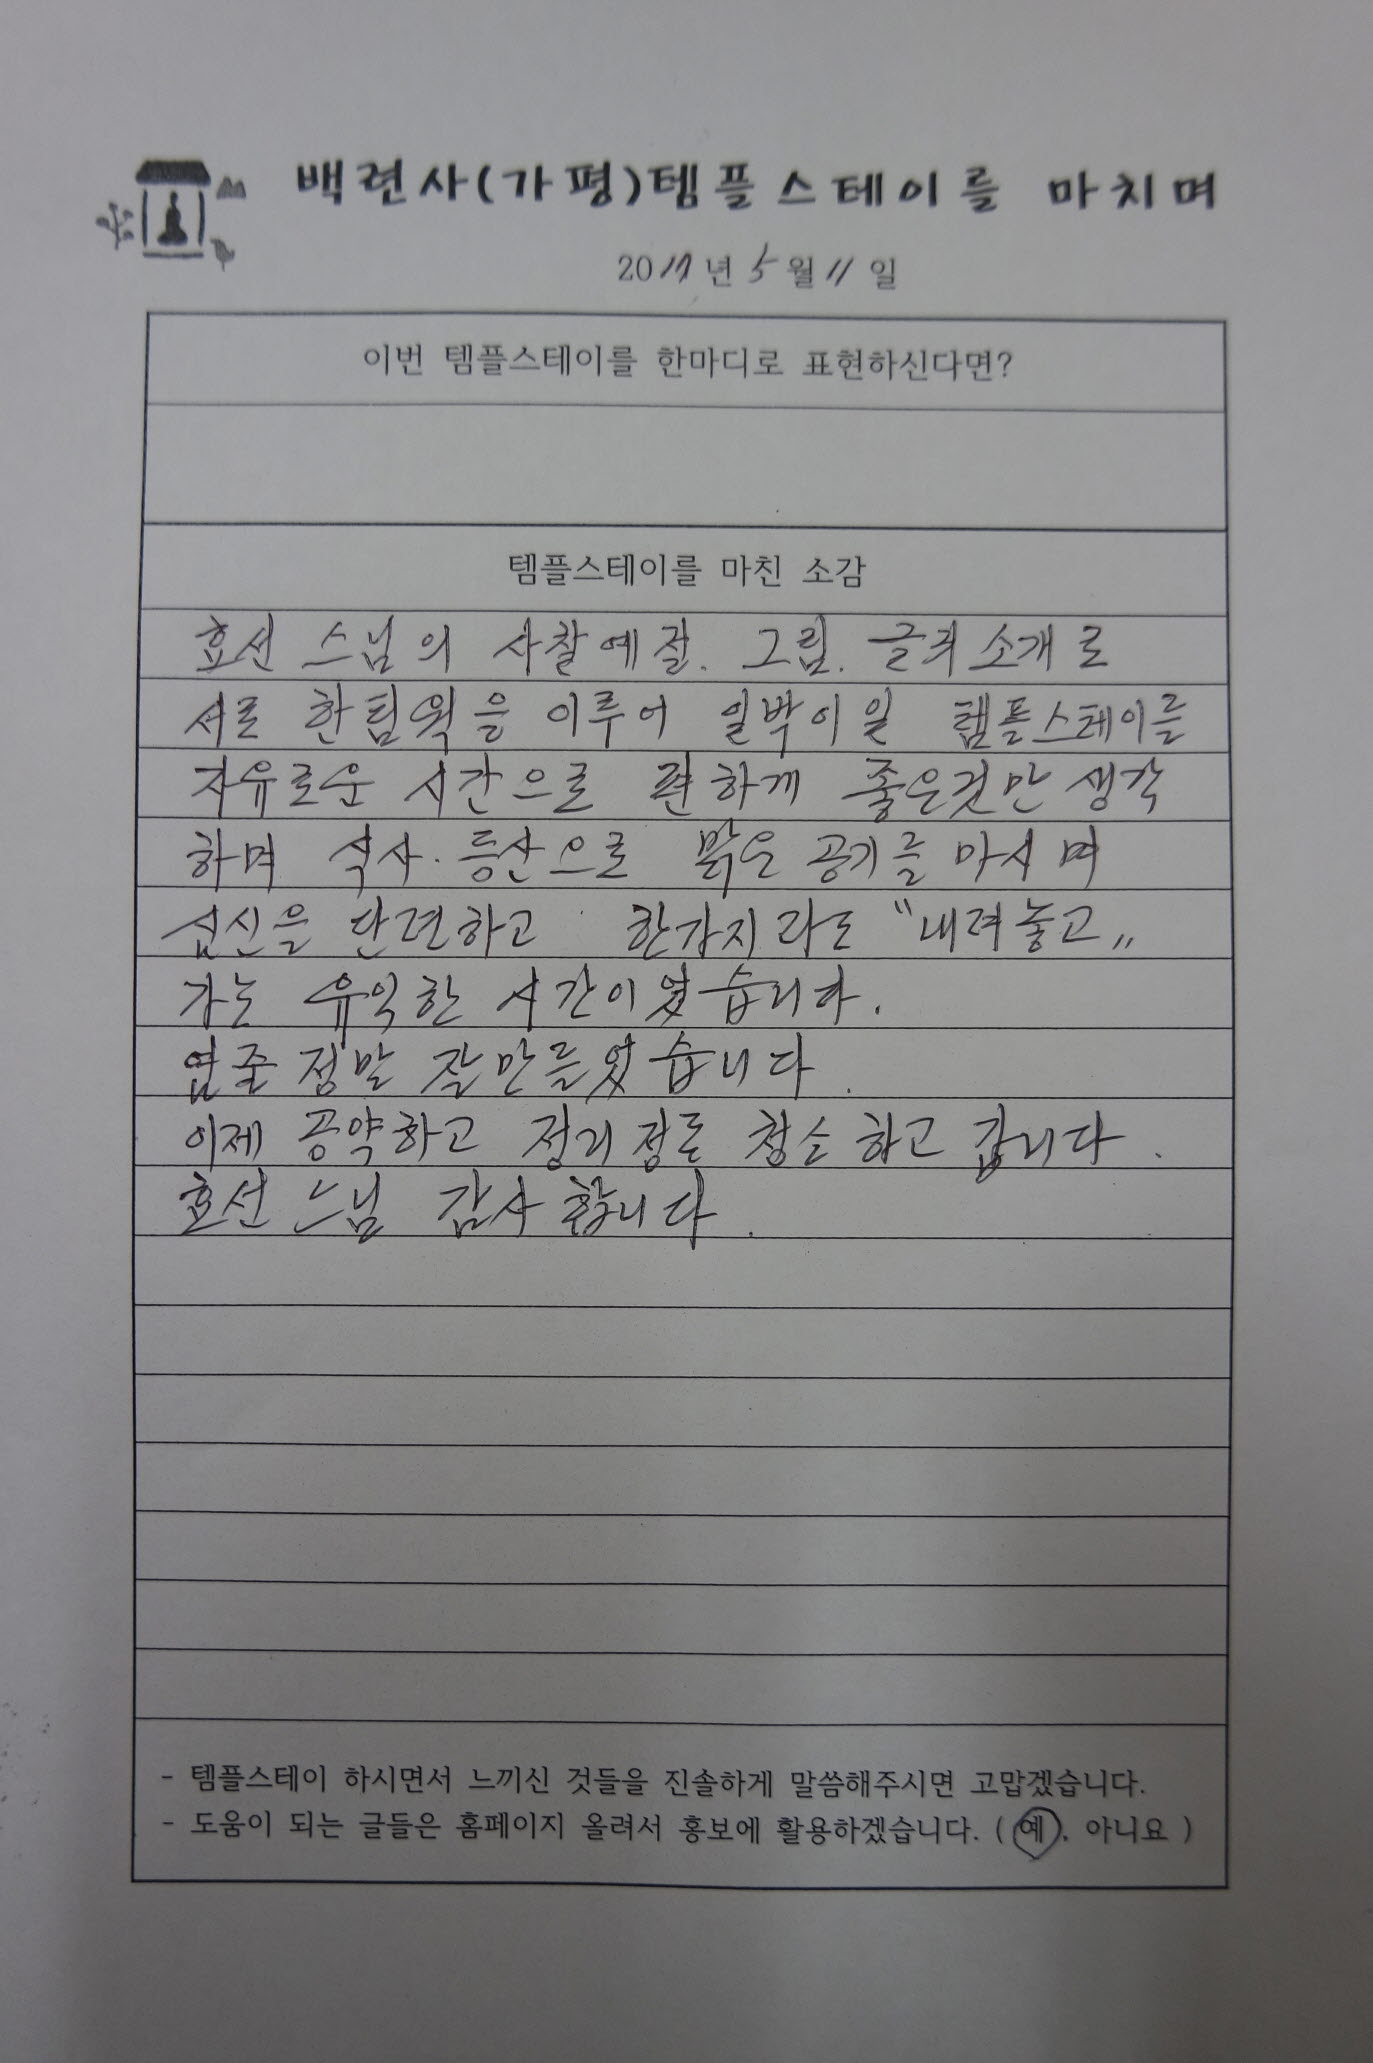 백련사(가평)템플스테이를 마치며
2017년 5월 11일
이번 템플스테이를 한마디로 표현하신다면?
템플스테이를 마친 소감
효선 스님의 사찰예절. 그림. 글귀 소개로
서로 한팀웍을 이루어 일박이일 템플스테이를
자유로운 시간으로 편하게 좋은것만 생각
하며 식사. 등산으로 맑은 공기를 마시며
심신을 단련하고 한가지라도 "내려놓고"
가는 유익한 시간이었습니다.
염줄 정말 잘 만들었습니다.
이제 공양하고 정리정돈 청소하고 갑니다.
효선스님 감사합니다.
- 템플스테이 하시면서 느끼신 것들을 진솔하게 말씀해주시면 고맙겠습니다.
- 도움이 되는 글들은 홈페이지 올려서 홍보에 활용하겠습니다. ( 예, 아니요 )